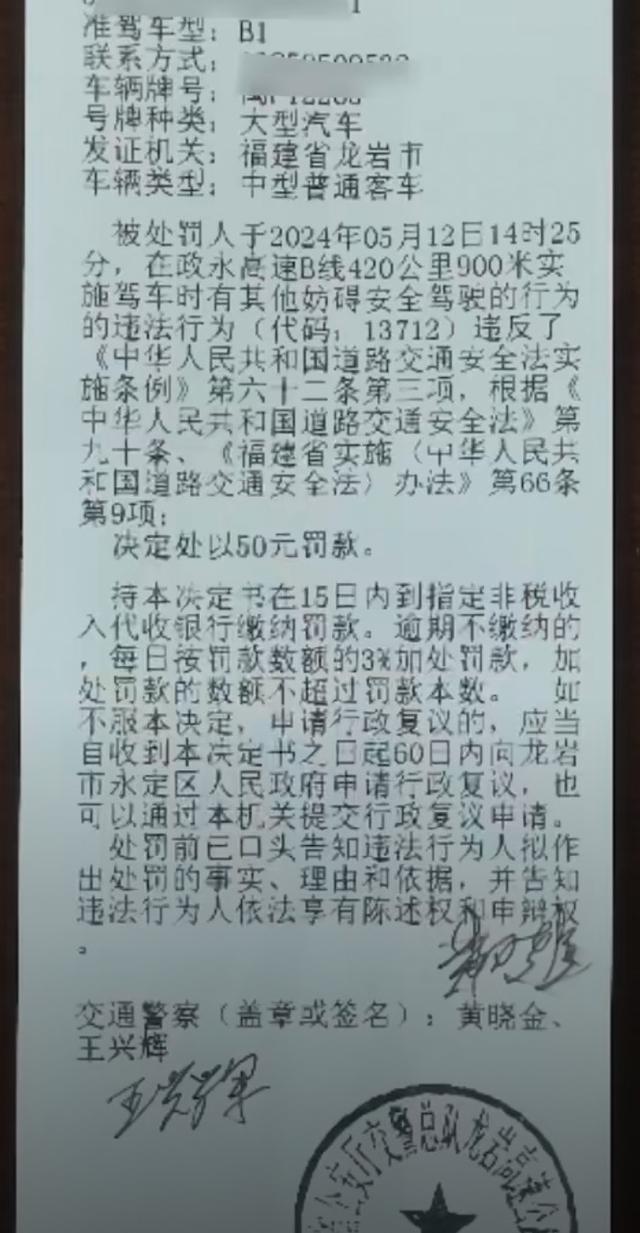 准驾车型：B1
联系方式：
车辆牌号：
号牌种类：大型汽车
发证机关：福建省龙岩市
车辆类型：中型普通客车
被处罚人于2024年05月12日14时25
分，在政永高速B线420公里900米实
施驾车时有其他妨碍安全驾驶的行为
的违法行为（代码：13712）违反了
《中华人民共和国道路交通安全法实
施条例》第六十二条第三项，根据《
中华人民共和国道路交通安全法》第
九十条、《福建省实施〈中华人民共
和国道路交通安全法〉办法》第66条
第9项；
决定处以50元罚款。
持本决定书在15日内到指定非税收
入代收银行缴纳罚款。逾期不缴纳的
，每日按罚款数额的3%加处罚款，加
处罚款的数额不超过罚款本数。 如
不服本决定，申请行政复议的，应当
自收到本决定书之日起60日内向龙岩
市永定区人民政府申请行政复议，也
可以通过本机关提交行政复议申请。
处罚前已口头告知违法行为人拟作
出处罚的事实、理由和依据，并告知
违法行为人依法享有陈述权和申辩权
。
交通警察（盖章或签名）：黄晓金、
王兴辉
公安厅交警总队龙岩高速公